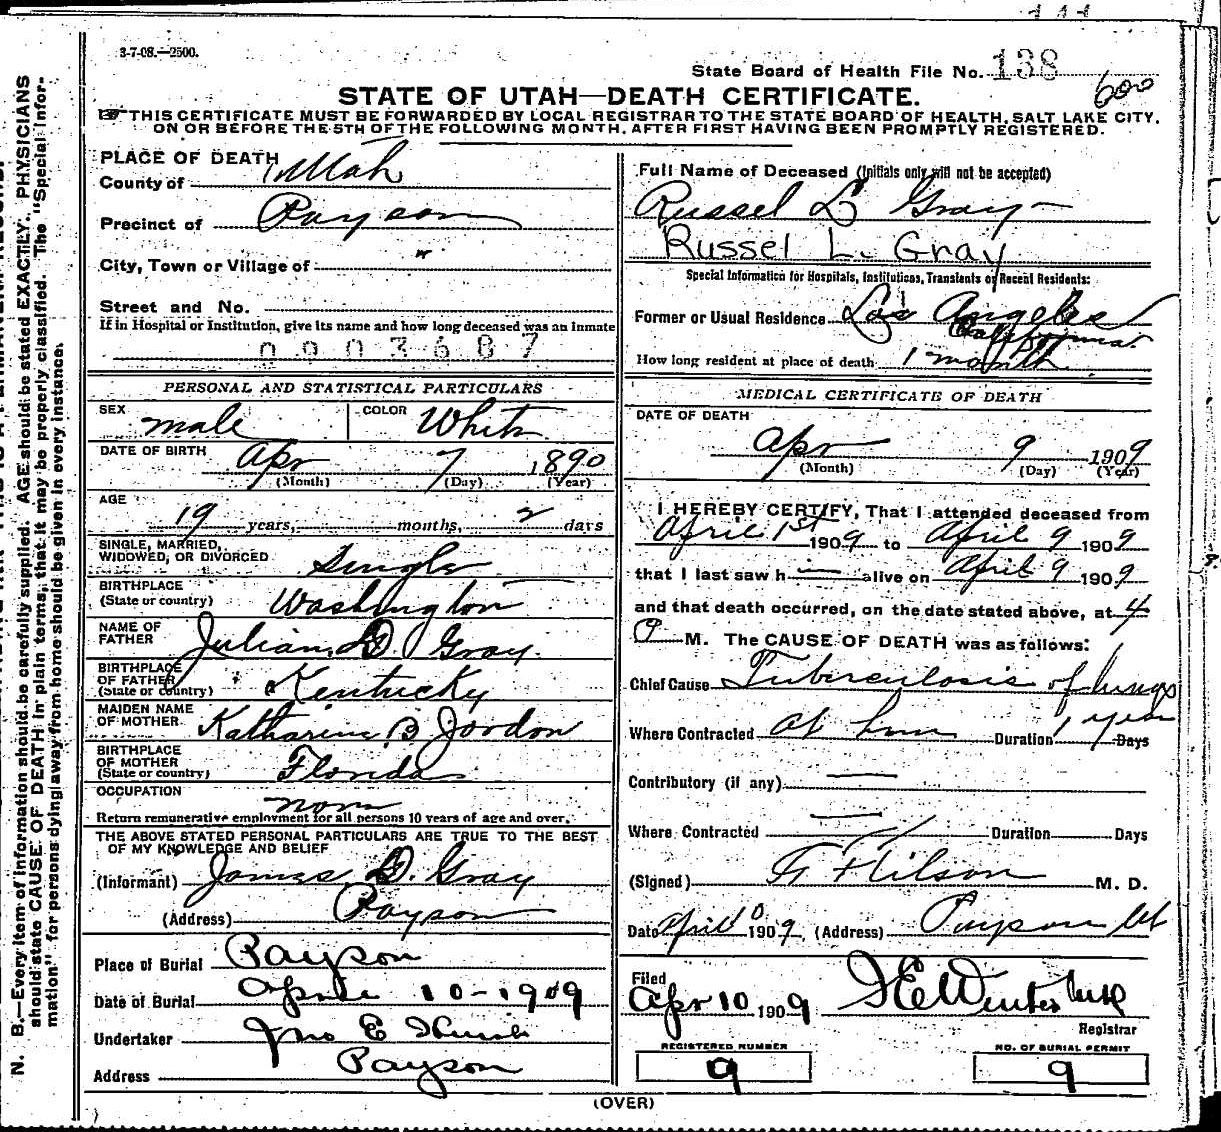 3-7-08.—2500.
State Board of Health File No. 138
600
STATE OF UTAH—DEATH CERTIFICATE.
THIS CERTIFICATE MUST BE FORWARDED BY LOCAL REGISTRAR TO THE STATE BOARD OF HEALTH, SALT LAKE CITY,
ON OR BEFORE THE 5TH OF THE FOLLOWING MONTH, AFTER FIRST HAVING BEEN PROMPTLY REGISTERED.
PLACE OF DEATH
County of Utah
Precinct of Payson
City, Town or Village of "
Street and No.
If in Hospital or Institution, give its name and how long deceased was an inmate
0903687
PERSONAL AND STATISTICAL PARTICULARS
SEX male COLOR White
DATE OF BIRTH Apr 7 1890
(Month) (Day) (Year)
AGE
19 years, months, 2 days
SINGLE, MARRIED,
WIDOWED, OR DIVORCED Single
BIRTHPLACE
(State or country) Washington
NAME OF
FATHER Julian D. Gray
BIRTHPLACE
OF FATHER
(State or country) Kentucky
MAIDEN NAME
OF MOTHER Katharine B Jordon
BIRTHPLACE
OF MOTHER
(State or country) Florida
OCCUPATION none
Return remunerative employment for all persons 10 years of age and over.
THE ABOVE STATED PERSONAL PARTICULARS ARE TRUE TO THE BEST
OF MY KNOWLEDGE AND BELIEF
(Informant) James D. Gray
(Address) Payson
Place of Burial Payson
Date of Burial April 10-1909
Undertaker Jno E
Address Payson
Full Name of Deceased (Initials only will not be accepted)
Russel L Gray
Russel L. Gray
Special Information for Hospitals, Institutions, Transients or Recent Residents:
Former or Usual Residence Los Angeles
California
How long resident at place of death 1 month
MEDICAL CERTIFICATE OF DEATH
DATE OF DEATH
Apr 9 1909
(Month) (Day) (Year)
I HEREBY CERTIFY, That I attended deceased from
April 1st 1909 to April 9 1909
that I last saw h alive on April 9 1909
and that death occurred, on the date stated above, at 4
P M. The CAUSE OF DEATH was as follows:
Chief Cause Tuberculosis of lungs
Where Contracted at Duration 1 year Days
Contributory (if any)
Where Contracted Duration Days
(Signed) M. D.
Date April 1909, (Address) Payson Ut
Filed
Apr 10 1909
Registrar
REGISTERED NUMBER
9
NO. OF BURIAL PERMIT
9
(OVER)
N. B.—Every item of information should be carefully supplied. AGE should be stated EXACTLY. PHYSICIANS
should state CAUSE OF DEATH in plain terms, that it may be properly classified. The "Special Infor-
mation" for persons dying away from home should be given in every instance.